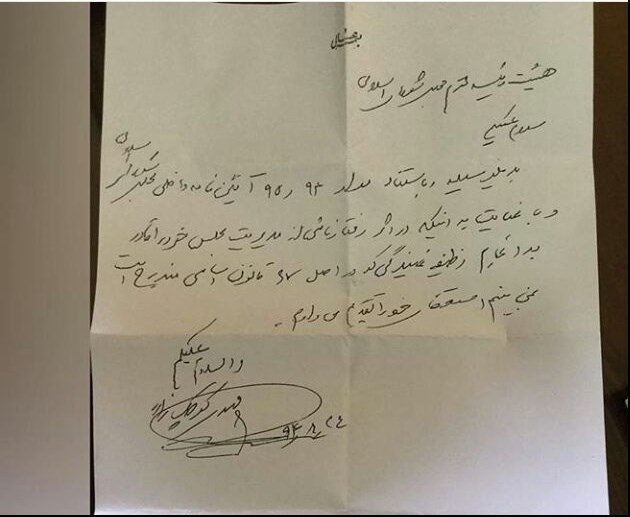 بسمه تعالی
هیئت رئیسه محترم مجلس شورای اسلامی
سلام علیکم
بدینوسیله و باستناد مواد ۹۳ و ۹۵ آئین نامه داخلی مجلس شورای اسلامی
و با عنایت به اینکه در اثر رفتار ناشی از مدیریت مجلس خود را قادر
به انجام وظیفه نمایندگی که در اصل ۶۷ قانون اساسی مندرج است
نمی بینم استعفای خود را تقدیم می دارم.
والسلام علیکم
مهدی کوچک زاده
۹۳/۸/۲۴